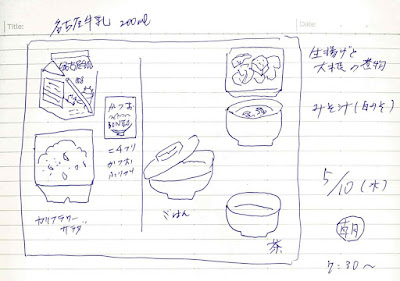 Title:
Date:
名古屋牛乳 200ml
名古屋牛乳
かつお
ふりかけ
カリフラワー
サラダ
ごはん
茶
生揚げと
大根の煮物
みそ汁(白みそ)
5/10(水)
朝
7:30~